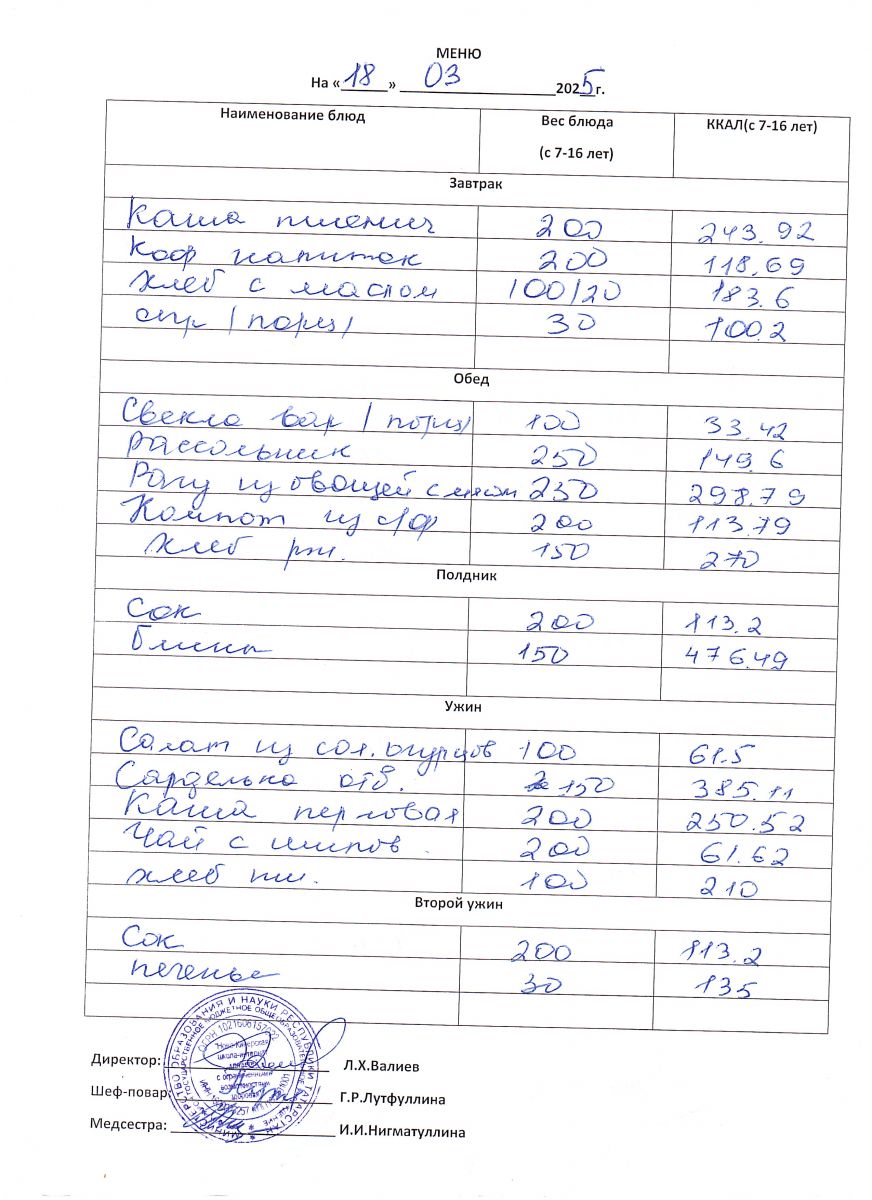 МЕНЮ
На «18» 03 2025 г.
Наименование блюд Вес блюда (с 7-16 лет) ККАЛ(с 7-16 лет)
Завтрак
Каша пшенич 200 243.92
Коф напиток 200 118.69
Хлеб с маслом 100/20 183.6
сыр /порц/ 30 100.2
Обед
Свекла вар /порц/ 100 33.42
Рассольник 250 149.6
Рагу из овощей с мясом 250 298.79
Компот из с/ф 200 113.79
Хлеб рж. 150 270
Полдник
Сок 200 113.2
Блины 150 476.49
Ужин
Салат из сол. огурцов 100 61.5
Сарделька отв. 150 385.11
Каша перловая 200 250.52
Чай с шипов. 200 61.62
хлеб пш. 100 210
Второй ужин
Сок 200 113.2
печенье 30 135
Директор: Л.Х.Валиев
Шеф-повар: Г.Р.Лутфуллина
Медсестра: И.И.Нигматуллина